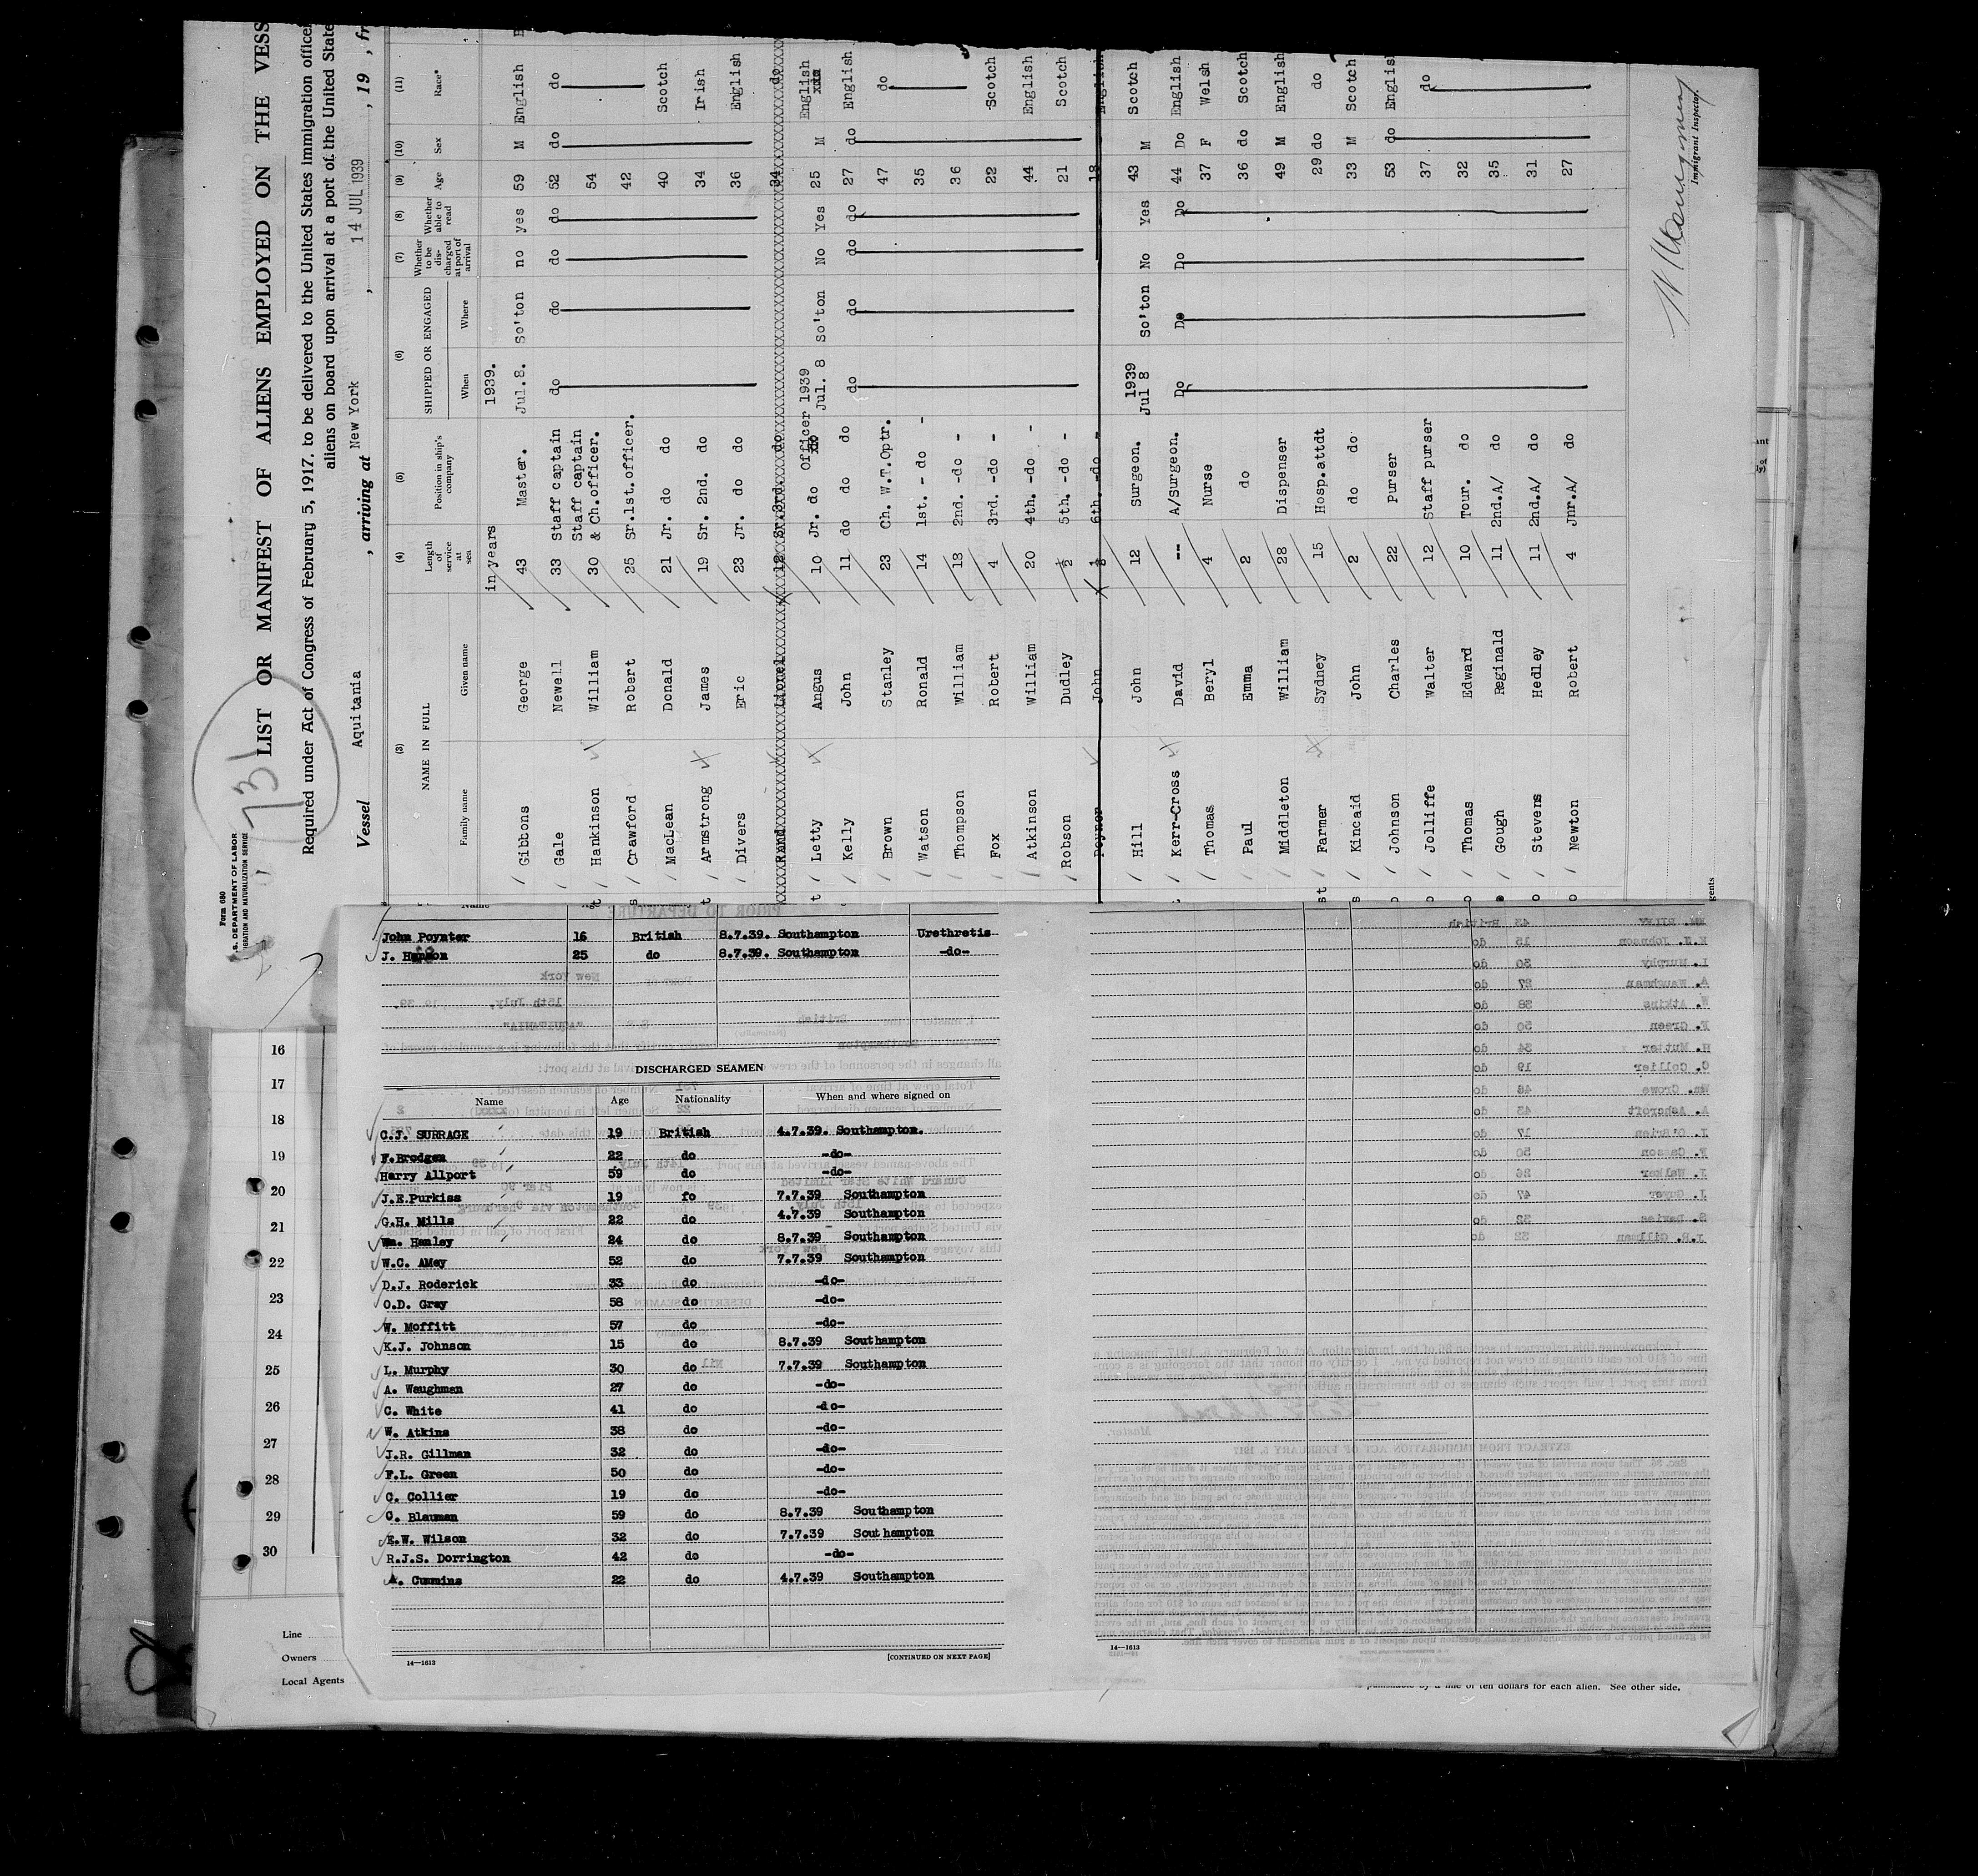 Form 680
U.S. DEPARTMENT OF LABOR
IMMIGRATION AND NATURALIZATION SERVICE
731
LIST OR MANIFEST OF ALIENS EMPLOYED ON THE VESS
Required under Act of Congress of February 5, 1917, to be delivered to the United States immigration officer
aliens on board upon arrival at a port of the United State
Vessel Aquitania , arriving at New York , 14 JUL 1939 , 19 , fr
(3) (4) (5) (6) (7) (8) (9) (10) (11)
NAME IN FULL Length of service at sea Position in ship's company SHIPPED OR ENGAGED Whether to be discharged at port of arrival Whether able to read Age Sex Race*
Family name Given name When Where
in years 1939.
Gibbons George 43 Master. Jul.8. So'ton no yes 59 M English
Gale Newell 33 Staff captain do do do do 52 do do
Hankinson William 30 Staff captain & Ch.officer. 54
Crawford Robert 25 Sr.1st.officer. 42
MacLean Donald 21 Jr. do do 40 Scotch
Armstrong James 19 Sr. 2nd. do 34 Irish
Divers Eric 23 Jr. do do 36 English
Lionel 12 Sr.3rd. do 34 do
Letty Angus 10 Jr. do Officer 1939 Jul. 8 So'ton No Yes 25 M English
Kelly John 11 do do do do do do do 27 do English
Brown Stanley 23 Ch. W.T.Optr. 47 do
Watson Ronald 14 1st. - do - 35
Thompson William 18 2nd. -do - 36
Fox Robert 4 3rd. -do - 22 Scotch
Atkinson William 20 4th. -do - 44 English
Robson Dudley 1/2 5th. -do - 21 Scotch
John 6th. -do - 18 English
Hill John 12 Surgeon. 1939 Jul 8 So'ton No Yes 43 M Scotch
Kerr-Cross David -- A/Surgeon. Do Do Do Do 44 Do English
Thomas Beryl 4 Nurse 37 F Welsh
Paul Emma 2 do 36 do Scotch
Middleton William 28 Dispenser 49 M English
Farmer Sydney 15 Hosp.attdt 29 do do
Kincaid John 2 do do 33 M Scotch
Johnson Charles 22 Purser 53 do English
Jolliffe Walter 12 Staff purser 37 do
Thomas Edward 10 Tour. do 32
Gough Reginald 11 2nd.A/ do 35
Stevens Hedley 11 2nd.A/ do 31
Newton Robert 4 Jnr.A/ do 27
Immigrant Inspector.
John Poynter 16 British 8.7.39. Southampton Urethretis
J. Hanson 25 do 8.7.39. Southampton -do-
DISCHARGED SEAMEN
Name Age Nationality When and where signed on
C.J. SURRAGE 19 British 4.7.39. Southampton.
F.Brodgen 22 do -do-
Harry Allport 59 do -do-
J.E.Purkiss 19 fo 7.7.39 Southampton
G.H. Mills 22 do 4.7.39 Southampton
Wm. Hanley 24 do 8.7.39 Southampton
W.C. AMey 52 do 7.7.39 Southampton
D.J. Roderick 33 do -do-
O.D. Gray 58 do -do-
W. Moffitt 57 do -do-
K.J. Johnson 15 do 8.7.39 Southampton
L. Murphy 30 do 7.7.39 Southampton
A. Waughman 27 do -do-
C. White 41 do -do-
W. Atkins 38 do -do-
J.R. Gillman 32 do -do-
F.L. Green 50 do -do-
C. Collier 19 do -do-
O. Blauman 59 do 8.7.39 Southampton
E.W. Wilson 32 do 7.7.39 Southampton
R.J.S. Dorrington 42 do -do-
A. Cummins 22 do 4.7.39 Southampton
14—1613 [CONTINUED ON NEXT PAGE]
14—1613
16
17
18
19
20
21
22
23
24
25
26
27
28
29
30
Line
Owners
Local Agents
of ten dollars for each alien. See other side.